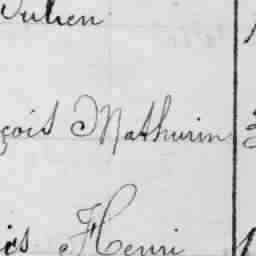 Julien
çois Mathurin
is Henri